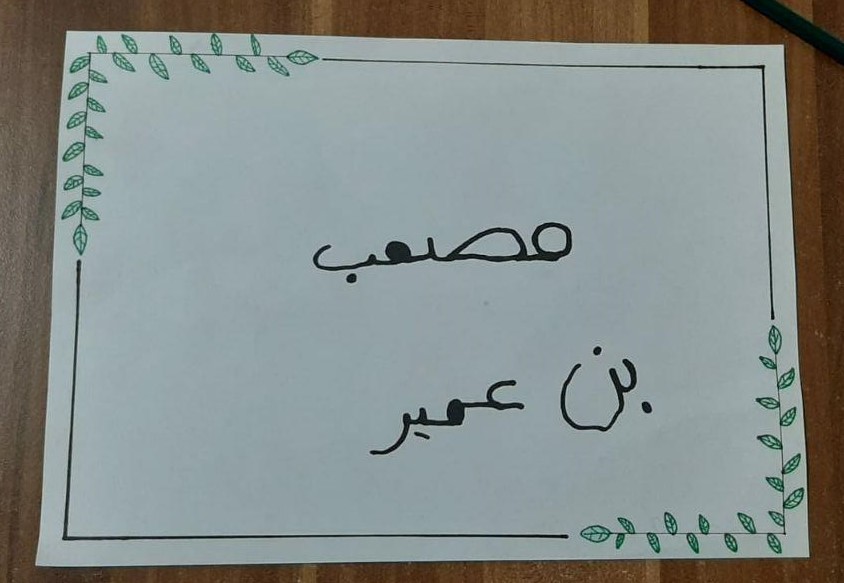 مصعب
بن عمير